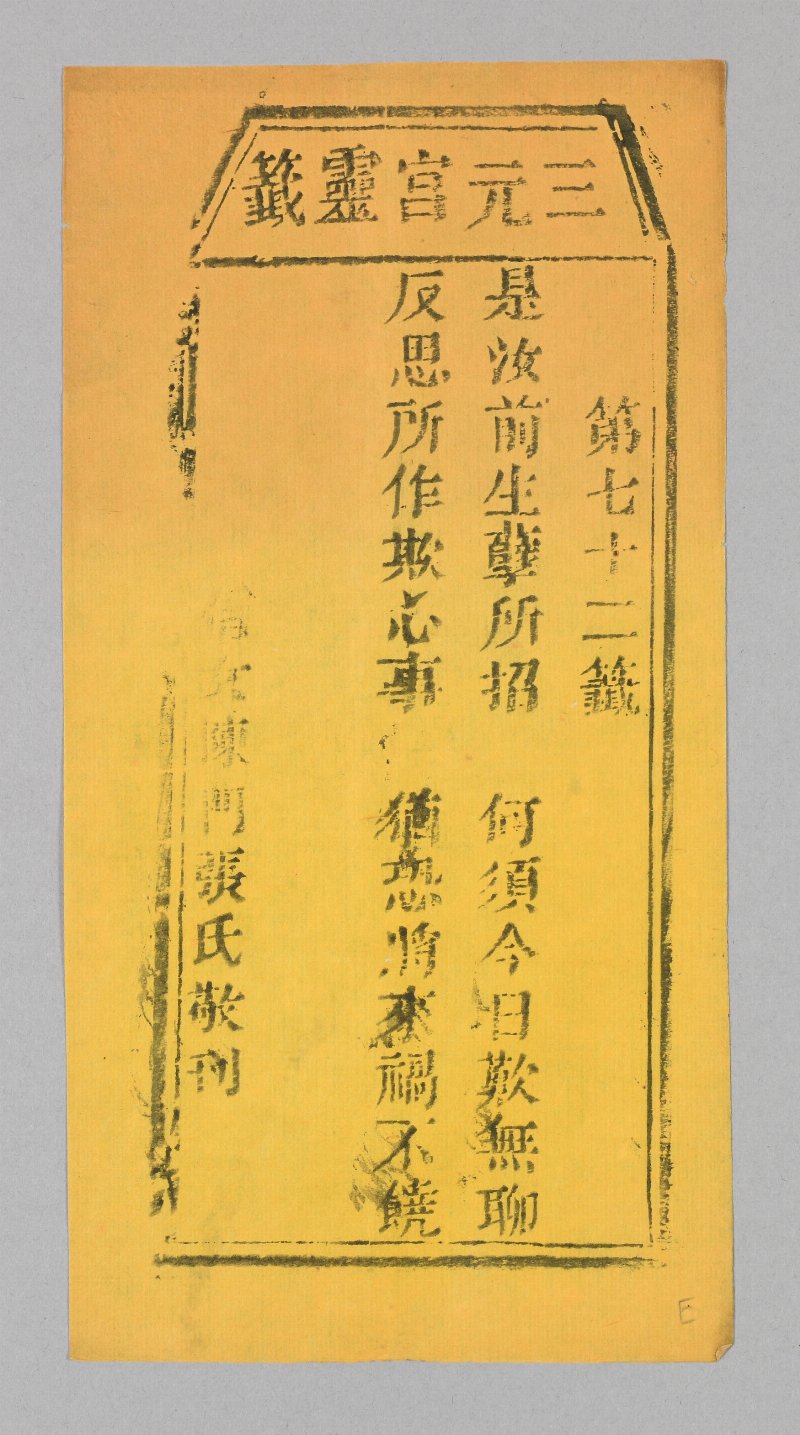 三元宮靈籤
第七十二籤
是汝前生孽所招 何須今日歎無聊
反思所作欺心事 猶恐將來禍不饒
信女陳門張氏敬刊
E